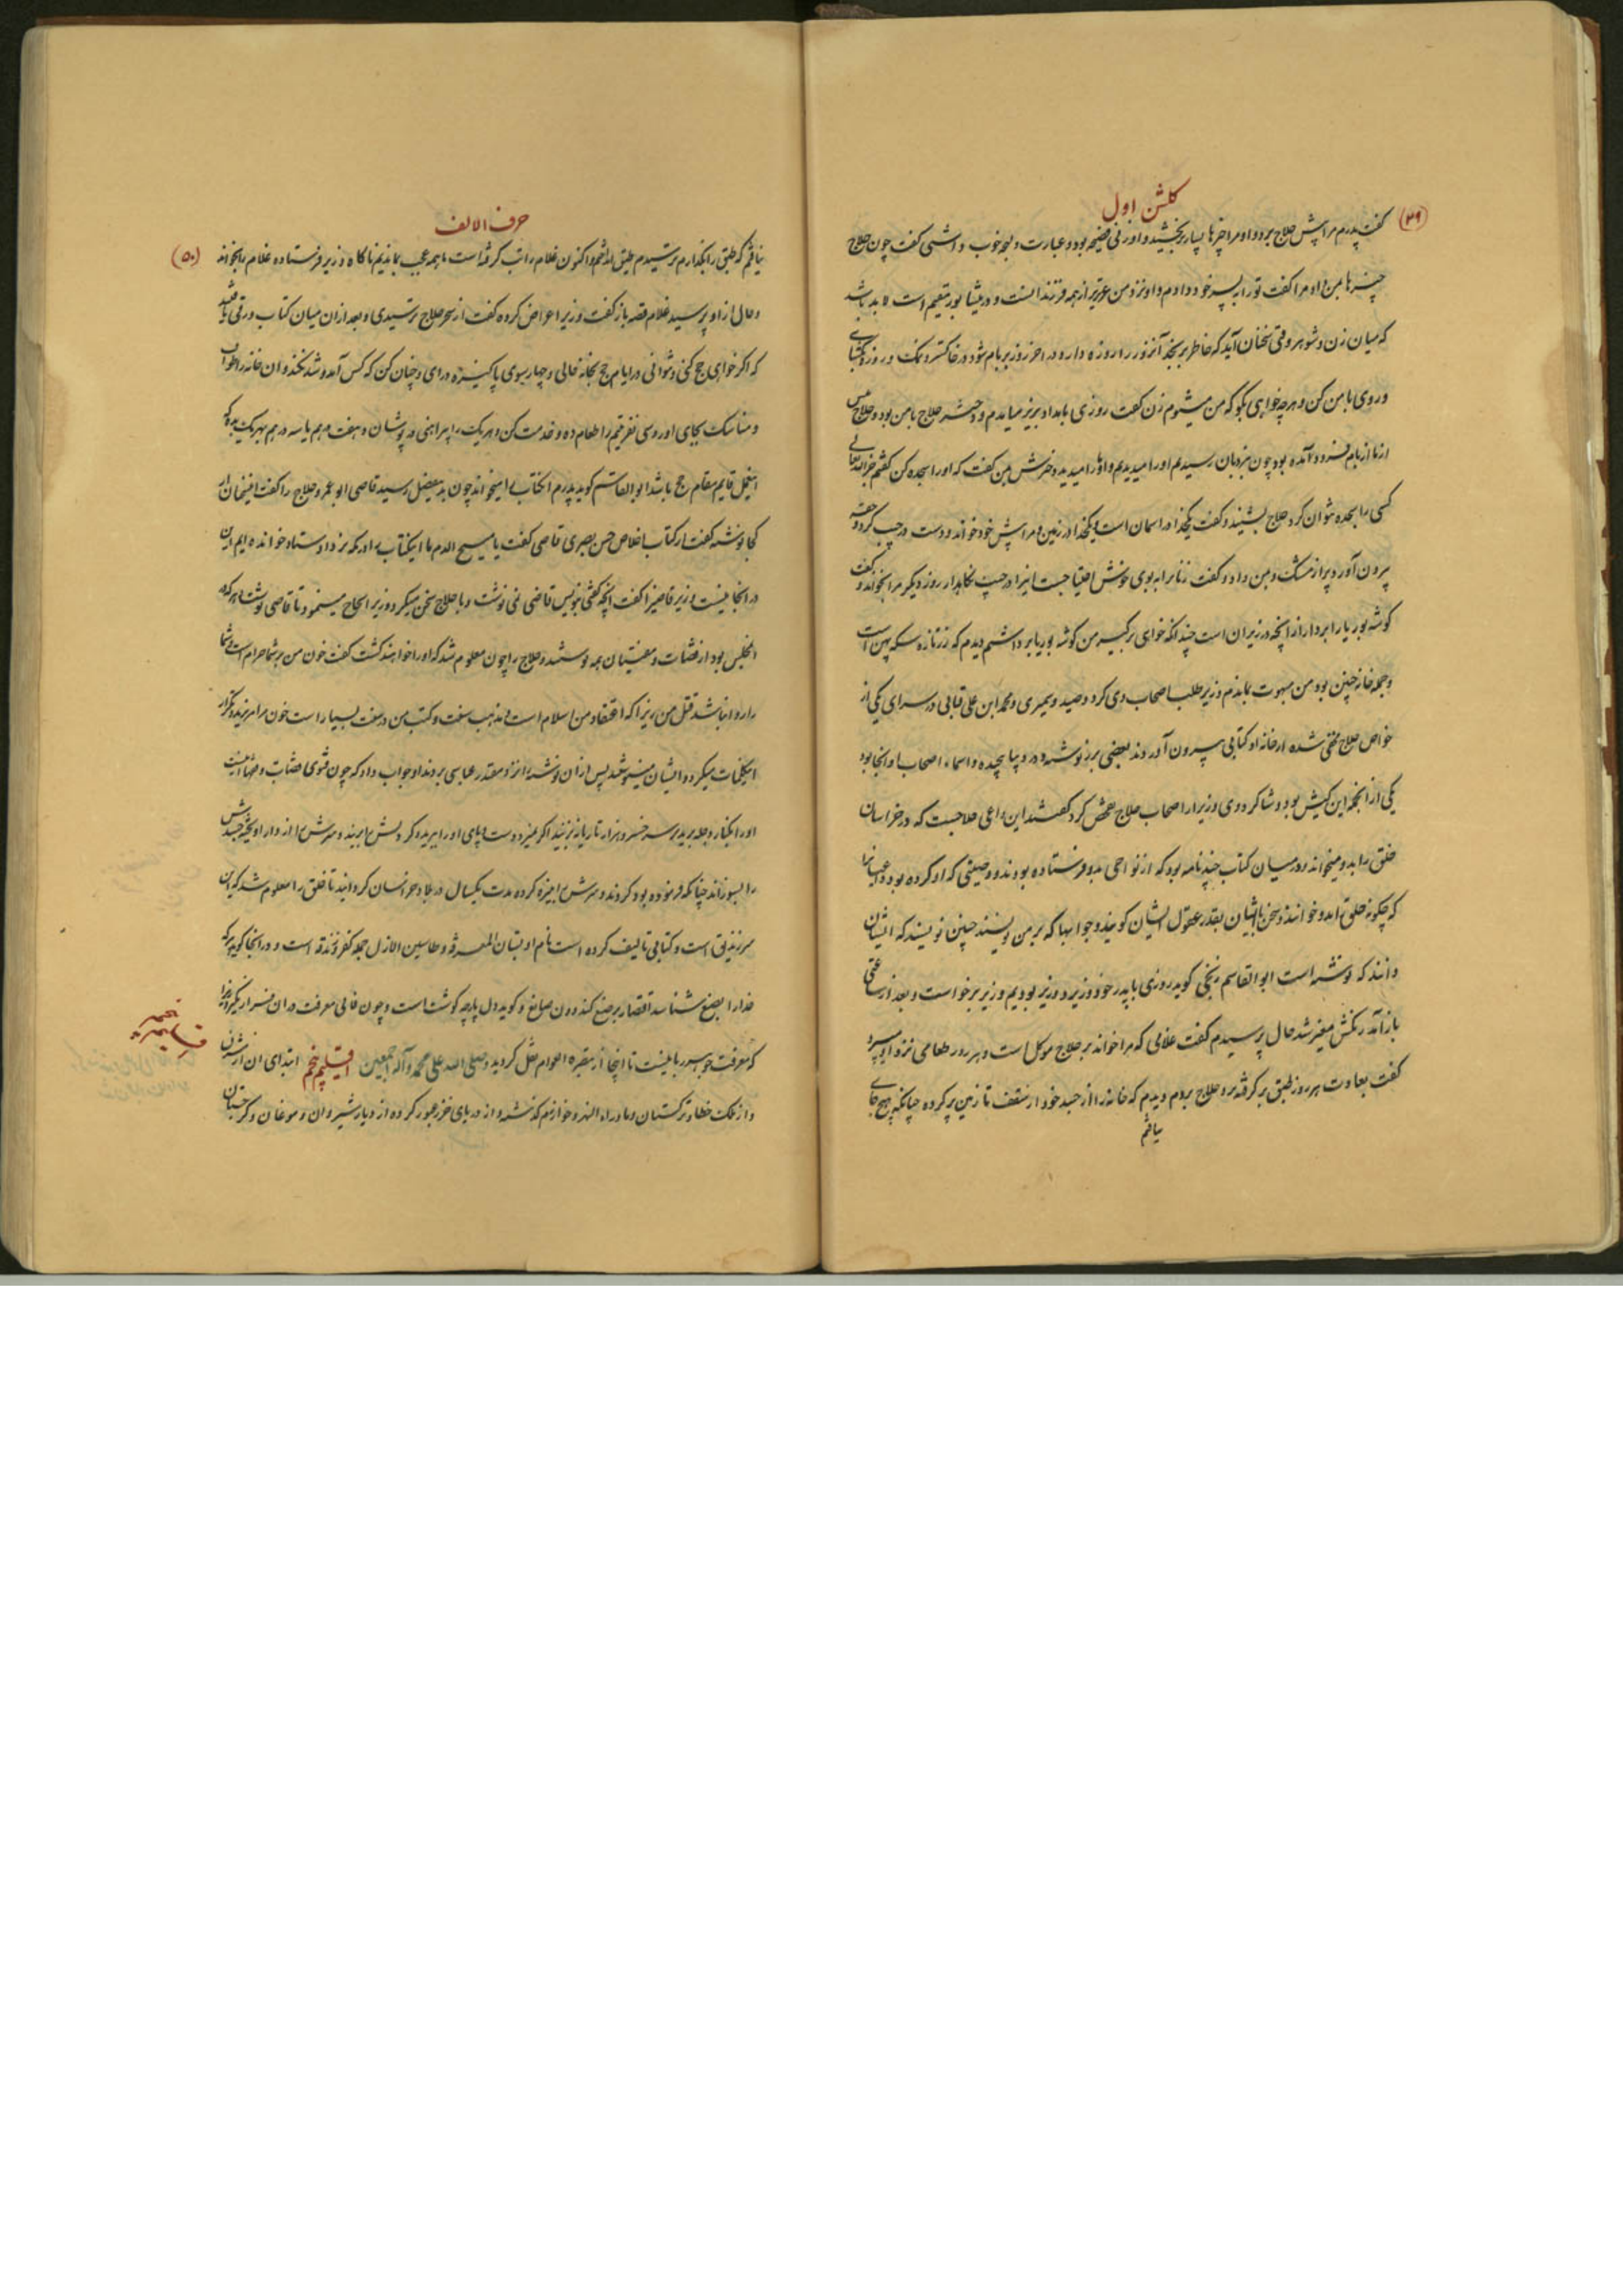 گلشن اول
(۴۹)
گفت پدرم مرا پیش حلاج برد و او مرا چیزها بسیار بخشید و او زنی فصیحه بود و عبارت و لهجه خوب داشتی گفت چون حلاج
چیزها بمن داد مرا گفت تو را به پسر خود دادم و او نزد من عزیزتر از همه فرزندانست و در نیشابور مقیم است لابد باشد
که میان زن و شوهر وقتی سخنان آید که خاطر برنجد آنروز را روزه دار و در اخر روز بر بام شو و در خاکستر و نمک و روزه بگشای
و روی با من کن و هر چه خواهی بگو که من میشنوم زن گفت روزی بامداد بزیر میامدم و دختر حلاج با من بود و حلاج پیش
از ما از بام فرود آمده بود چون بنردبان رسیدیم او را میدیدیم و او ما را میدید دخترش بمن گفت که او را سجده کن گفتم جز الله تعالی
کسی را سجده نتوان کرد حلاج بشنید و گفت یکخدا در اسمان است و یکخدا در زمین و مرا پیش خود خواند و دست در جیب کرد و حقه
بیرون آورد پر از مشک و بمن داد و گفت زنانرا به بوی خوش احتیاجست اینرا در جیب نگاهدار روز دیگر مرا بخواند و گفت
گوشه بوریا را بردار از آنچه در زیر ان است چندانکه خواهی برگیر من گوشه بوریا برداشتم دیدم که زر تازه سکه پهن است
و جمله خانه چنین بود من مبهوت بماندم وزیر طلب اصحاب وی کرد و حمید و سمیری و محمد ابن علی قنایی در سرای یکی از
خواص حلاج مخفی شده از خانه او کتابی بیرون آوردند بعضی بزر نوشته در دیبا پیچیده و اسماء اصحاب او انجا بود
یکی از انجمله این کیش بود و شاکر دوی وزیر از اصحاب حلاج تفحص کرد گفتند این داعی حلاجست که در خراسان
خلق را بدو میخواند و در میان کتاب چند نامه بود که از نواحی بدو فرستاده بودند و وصیتی که او کرده بود داعیانرا
که چگونه خلق را بدو خوانند و سخن با ایشان بقدر عقول ایشان گویند و جوابها که بر من نویسند چنین نویسند که ایشان
دانند که نوشته است ابو القاسم زنجی گوید روزی با پدر خود نزد وزیر بودیم وزیر برخواست و بعد از ساعتی
باز آمد رنگش متغیر شد حال پرسیدم گفت غلامی که مرا خواند بر حلاج موکل است و هر روز طعامی نزد او میبرد
گفت بعادت هر روز طبقی برگرفته بر حلاج بردم دیدم که خانه را از جسد خود از سقف تا زمین پر کرده چنانکه هیچ جای
نیافتم
حرف الالف
(۵۰)
نیافتم که طبق را بگذارم ترسیدم طبق انداختم و اکنون غلام را تب گرفته است ما همه عجب بماندیم ناگاه وزیر فرستاده غلام را بخواند
و حال از او پرسید غلام قصه باز گفت وزیر اعراض کرده گفت از سحر حلاج ترسیدی و بعد از ان میان کتاب ورقی یافتند
که اگر خواهی حج کنی و نتوانی در ایام حج بخانه خالی و چهار سوی پاکیزه درای و چنان کن که کس آمد و شد نکند و ان خانه را طواف کن
و مناسک بجای اور و سی نفر یتیم را طعام ده و خدمت کن و هر یک را پیراهنی در پوشان و هفت درهم یا سه درهم بهر یک بده که
اینعمل قایم مقام حج باشد ابو القاسم گوید پدرم انکتاب را میخواند چون بدینفصل رسید قاضی ابو عمرو حلاج را گفت اینسخنان از
کجا نوشته گفت از کتاب اخلاص حسن بصری قاضی گفت یا مسیح الدم ما اینکتاب را در مکه نزد استاد خوانده ایم این
در انجا نیست وزیر قاضیرا گفت آنچه گفتی بنویس قاضی نمی نوشت و با حلاج سخن میکرد و وزیر الحاح مینمود تا قاضی نوشت و هر که در
انمجلس بود از قضات و مفتیان همه نوشتند و حلاج را چون معلوم شد که او را خواهند کشت گفت خون من بر شما حرام است و شما
را روا نباشد قتل من زیرا که اعتقاد من اسلام است و مذهب سنت و کتب من در سنت بسیار است خون مرا مریزید و تکرار
اینکلمات میکرد و ایشان مینوشتند پس از ان نوشته را نزد مقتدر عباسی بردند او جواب داد که چون فتوی قضات و علما اینست
او را بکنار دجله برید بر سر جسر و هزار تازیانه بزنید اگر نمیرد دست و پای او را ببرید و گردنش را بزنید و سرش را از دار اویخته جسدش
را بسوزاند چنانکه فرموده بود کردند و سرش را بنیزه کرده مدت یکسال در بلاد خراسان گردانیدند تا خلق را معلوم شد که این
سر زندیق است و کتابی تالیف کرده است نام او بستان المعرفه و طاسین الازل جمله کفر و زندقه است و در انجا گوید هر که
خدا را بصنع شناسد اقتصار بر صنع کند دون صانع و گوید دل پارچه گوشت است و چون فانی معرفت در ان قرار نگیرد زیرا
که معرفت جوهر ربانیست تا اینجا از تبصرة العوام نقل گردید و صلی الله علی محمد و آله اجمعین اقلیم پنجم ابتدای ان از شرق
و از ملک خطا و ترکستان و ماوراء النهر و خوارزم گذشته و از دریای خزر عبور کرده از دیار شیروان و موغان و گرجستان
اقلیم پنجم